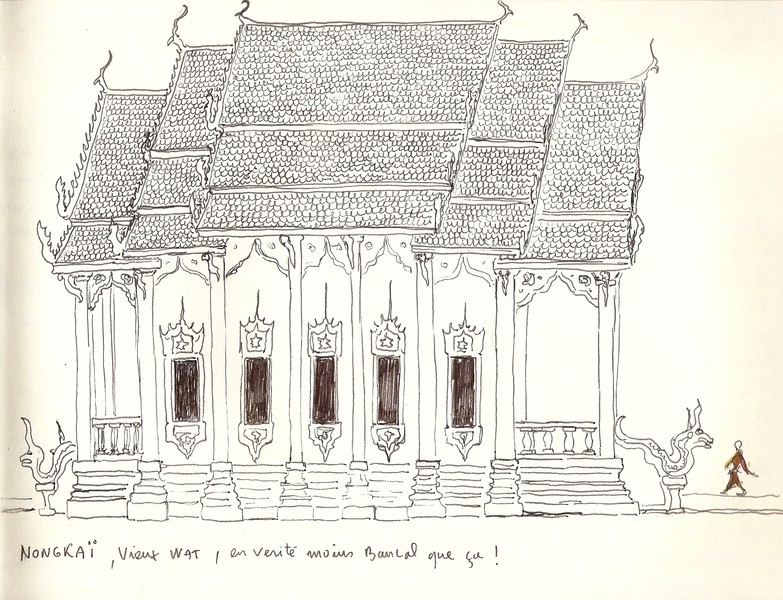 NONGKAÏ, Vieux WAT, en verité moins Bancal que ça !